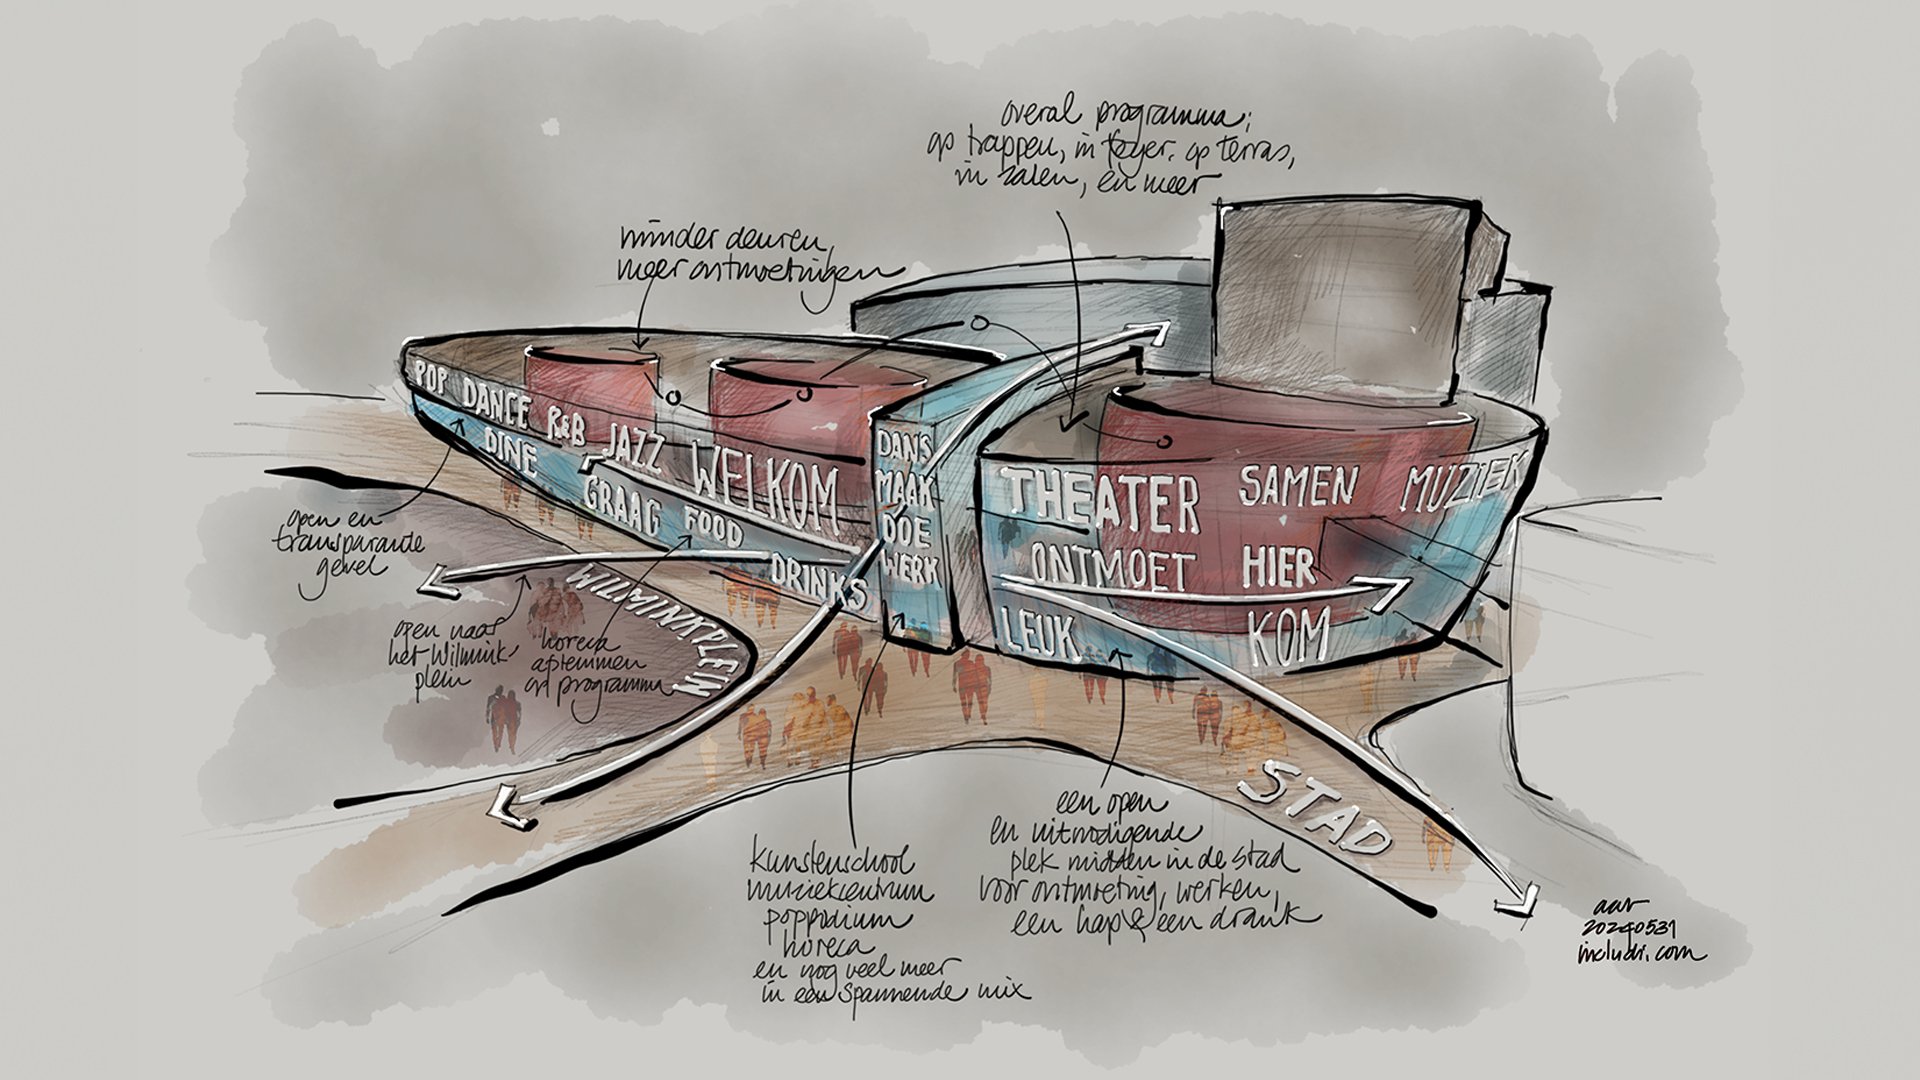 overal programma;
op trappen, in foyer, op terras,
in zalen, en meer
minder deuren,
meer ontmoetingen
POP DANCE R&B JAZZ WELKOM
DINE GRAAG FOOD DRINKS
DANS
MAAK
DOE
WERK
THEATER SAMEN MUZIEK
ONTMOET HIER
LEUK KOM
open en
transparante
gevel
WILMINKPLEIN
open naar
het Wilmink-
plein
horeca
afstemmen
op programma
STAD
kunstenschool
muziekcentrum
poppodium
horeca
en nog veel meer
in een spannende mix
een open
en uitnodigende
plek midden in de stad
voor ontmoeting, werken,
een hap & een drank
20240531
includi.com